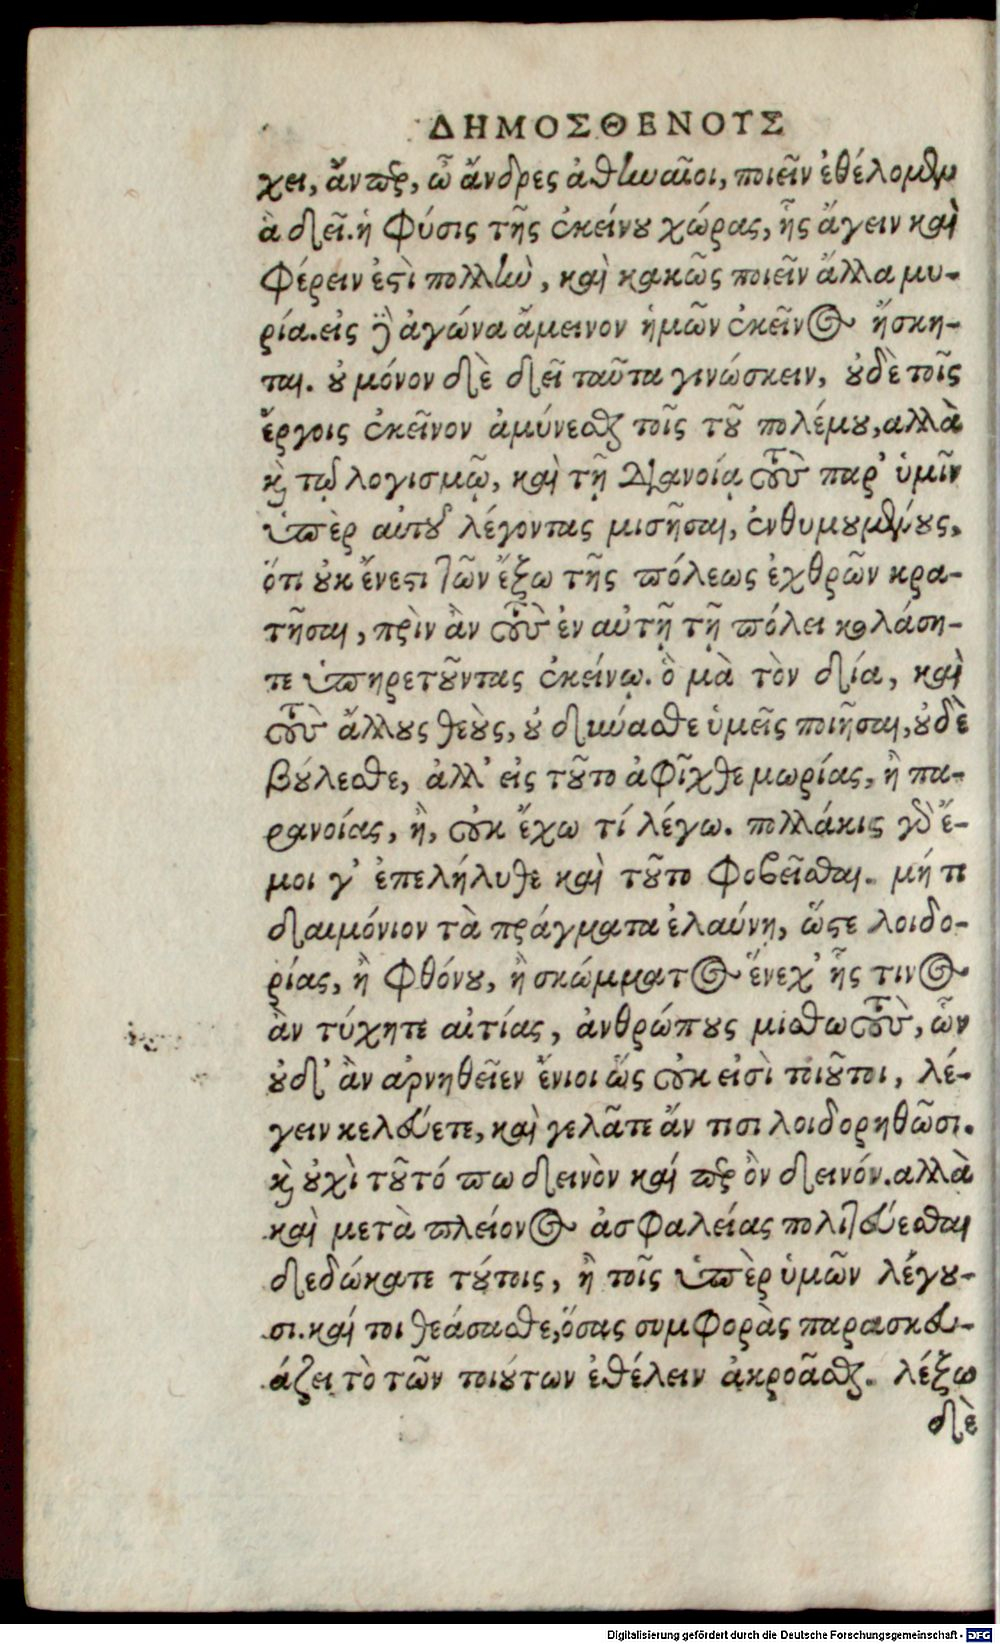 ΔΗΜΟΣΘΕΝΟΥΣ
χει, ἄνπερ, ὦ ἄνδρες ἀθηναῖοι, ποιεῖν ἐθέλομεν
ἃ δεῖ. ἡ φύσις τῆς ἐκείνου χώρας, ἧς ἄγειν καὶ
φέρειν ἐστὶ πολλὴν, καὶ κακῶς ποιεῖν ἄλλα μυ-
ρία. εἰς δὲ ἀγώνα ἄμεινον ἡμῶν ἐκεῖνος ἤσκη-
ται. οὐ μόνον δὲ δεῖ ταῦτα γινώσκειν, οὐδὲ τοῖς
ἔργοις ἐκεῖνον ἀμύνεσθαι τοῖς τοῦ πολέμου, ἀλλὰ
καὶ τῷ λογισμῷ, καὶ τῇ διανοίᾳ τοὺς παρ' ὑμῖν
ὑπὲρ αὐτοῦ λέγοντας μισῆσαι, ἐνθυμουμένους,
ὅτι οὐκ ἔνεστι τῶν ἔξω τῆς πόλεως ἐχθρῶν κρα-
τῆσαι, πρὶν ἂν τοὺς ἐν αὐτῇ τῇ πόλει κολάση-
τε ὑπηρετοῦντας ἐκείνῳ. ὃ μὰ τὸν δία, καὶ
τοὺς ἄλλους θεοὺς, οὐ δυνήσεσθε ὑμεῖς ποιῆσαι, οὐδὲ
βούλεσθε, ἀλλ' εἰς τοῦτο ἀφῖχθε μωρίας, ἢ πα-
ρανοίας, ἢ, οὐκ ἔχω τί λέγω. πολλάκις γὰρ ἔ-
μοι γ' ἐπελήλυθε καὶ τοῦτο φοβεῖσθαι. μή τι
δαιμόνιον τὰ πράγματα ἐλαύνῃ, ὥστε λοιδο-
ρίας, ἢ φθόνου, ἢ σκώμματος ἕνεχ' ἧς τινος
ἂν τύχητε αἰτίας, ἀνθρώπους μισθωτοὺς, ὧν
οὐδ' ἂν ἀρνηθεῖεν ἔνιοι ὥς οὐκ εἰσὶ τοιοῦτοι, λέ-
γειν κελεύετε, καὶ γελᾶτε ἄν τισι λοιδορηθῶσι.
καὶ οὐχὶ τοῦτό πω δεινὸν καί περ ὂν δεινόν. ἀλλὰ
καὶ μετὰ πλείονος ἀσφαλείας πολιτεύεσθαι
δεδώκατε τούτοις, ἢ τοῖς ὑπὲρ ὑμῶν λέγου-
σι. καί τοι θεάσασθε, ὅσας συμφορὰς παρασκευ-
άζει τὸ τῶν τοιούτων ἐθέλειν ἀκροᾶσθαι. λέξω
δὲ
Digitalisierung gefördert durch die Deutsche Forschungsgemeinschaft - DFG